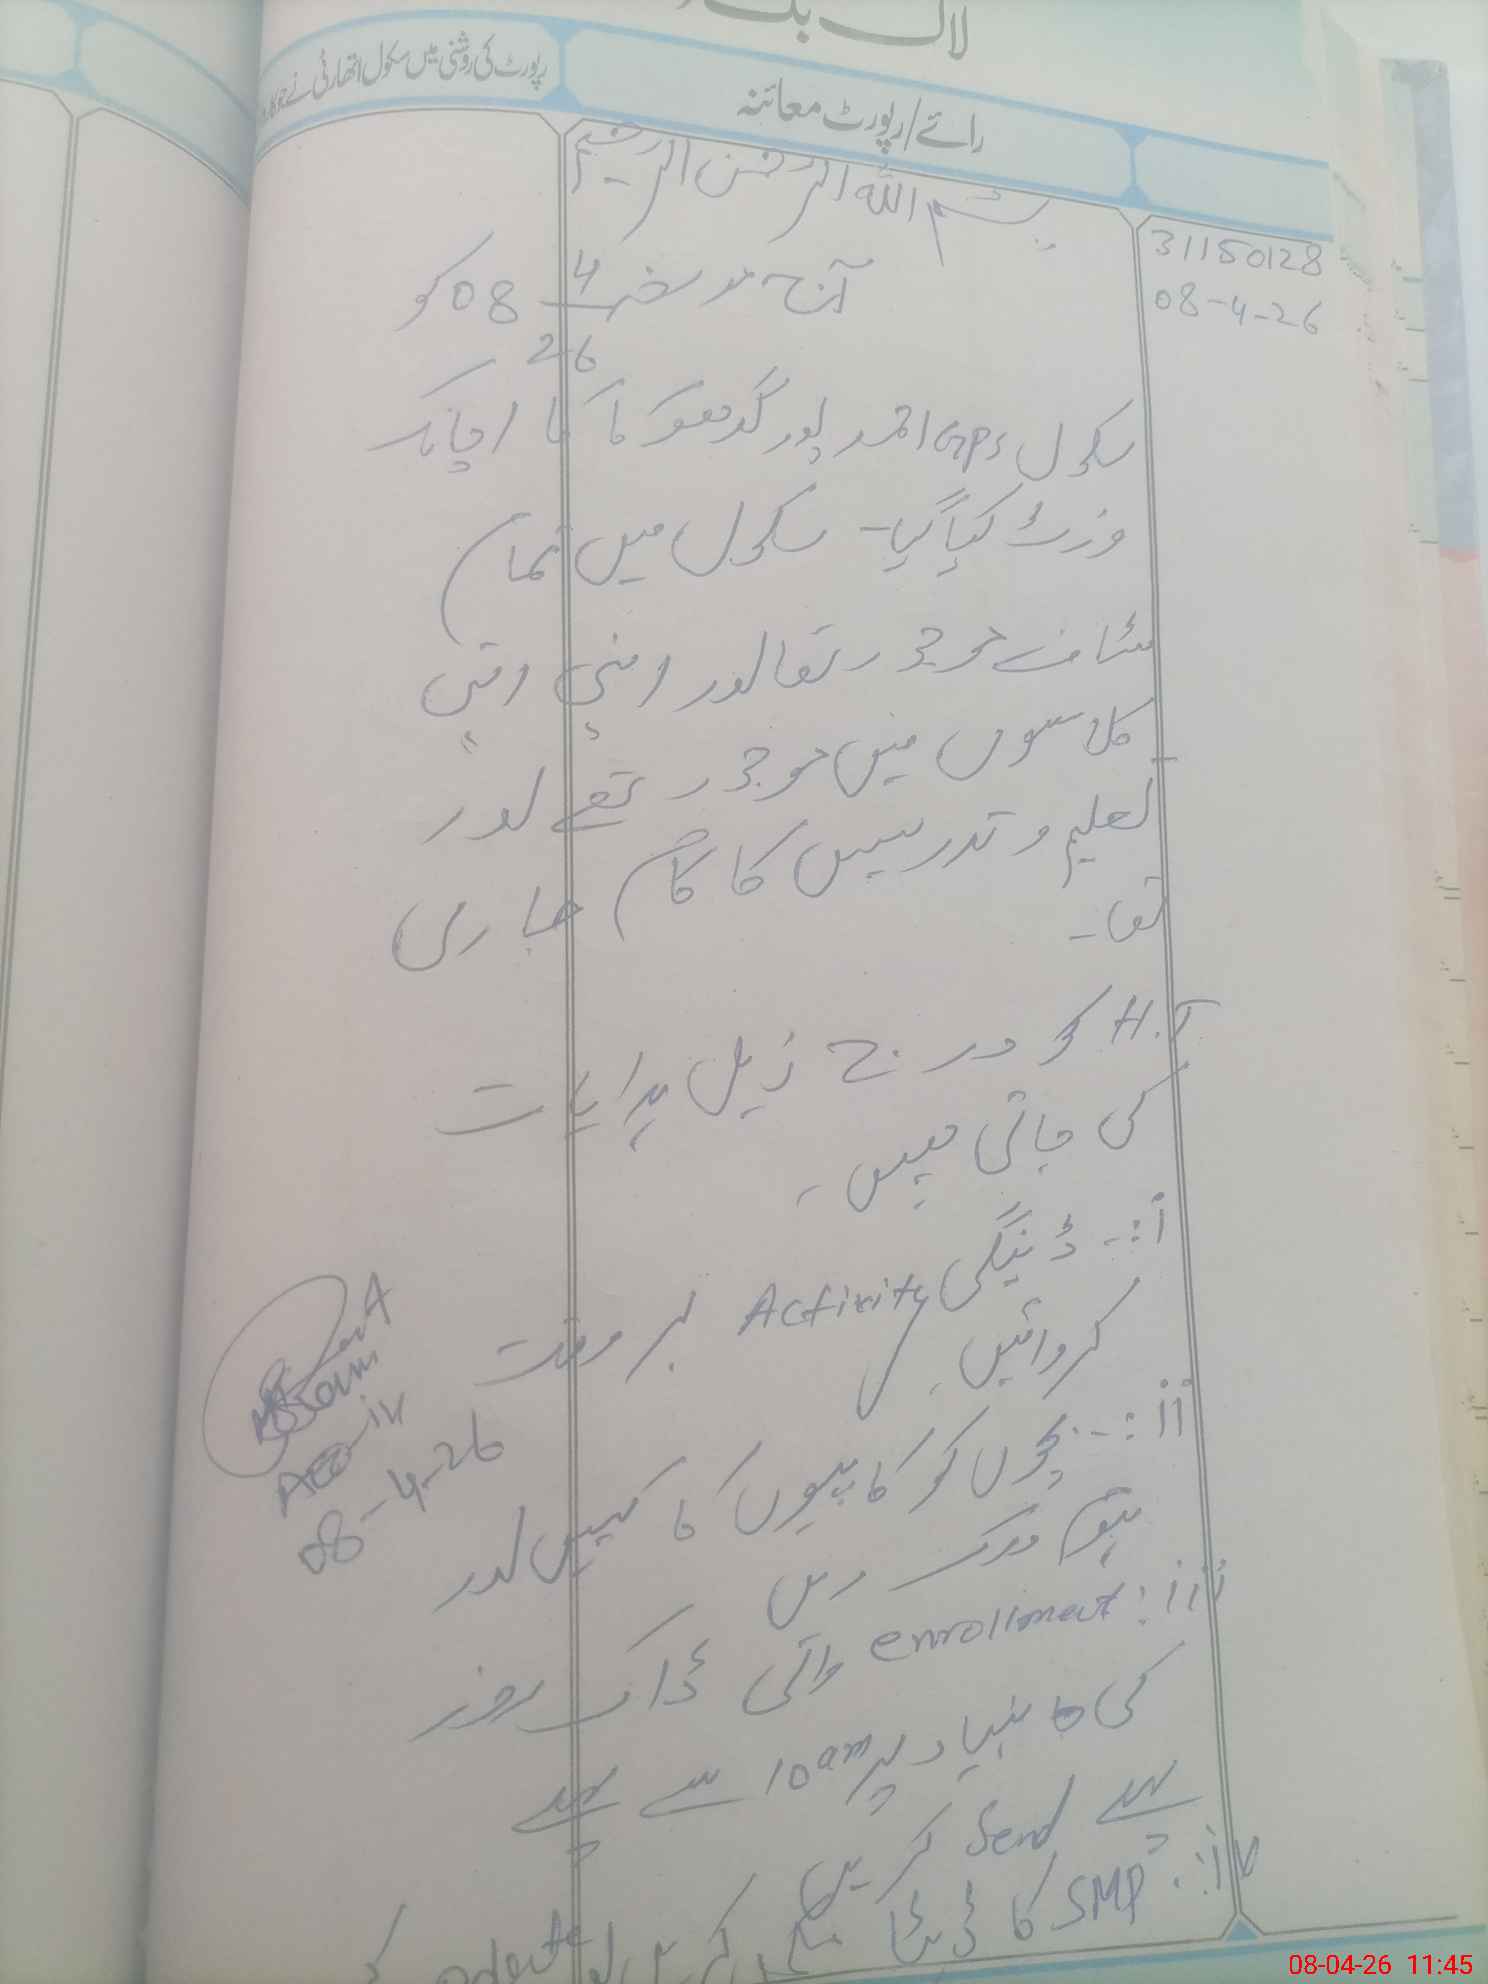 لاگ بک
رائے/رپورٹ معائنہ
رپورٹ کی روشنی میں سکول اتھارٹی نے جو
31150128
08-4-26
بسم اللہ الرحمٰن الرحیم
آج مورخہ 08-4-26 کو
سکول GPS احمد پور کا اچانک
وزٹ کیا گیا۔ سکول میں تمام
سٹاف موجود تھا اور اپنی اپنی
کلاسوں میں موجود تھے اور
تعلیم و تدریس کا کام جاری
تھا۔
H.T کو درج ذیل ہدایات
کی جاتی ہیں۔
i:- ڈینگی Activity بر وقت
کروائیں۔
ii:- بچوں کو کاپیوں کا کہیں اور
ہوم ورک دیں
iii: enrollment والی ڈاک روز
کی بنیاد پر 10am سے پہلے
پہلے Send کریں
iv: SMP کا ڈیٹا کریں
AEO iv
08-4-26
08-04-26 11:45